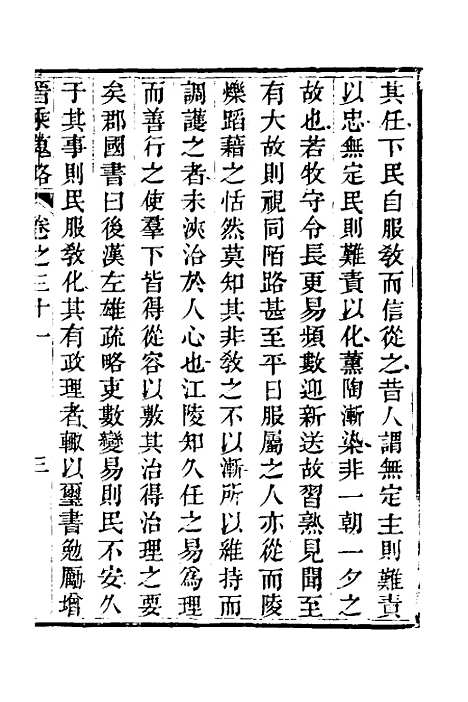 其任下民自服敎而信從之昔人謂無定主則難責
以忠無定民則難責以化薰陶漸染非一朝一夕之
故也若牧守令長更易頻數迎新送故習熟見聞至
有大故則視同陌路甚至平日服屬之人亦從而陵
爍蹈藉之恬然莫知其非敎之不以漸所以維持而
調護之者未浹洽於人心也江陵知久任之易爲理
而善行之使羣下皆得從容以敷其治得治理之要
矣郡國書曰後漢左雄疏略吏數變易則民不安久
于其事則民服敎化其有政理者輙以璽書勉勵增
晉乘蒐略 卷之三十一 三